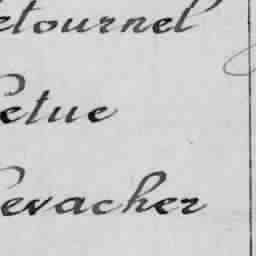 etournel
Petue
Levacher